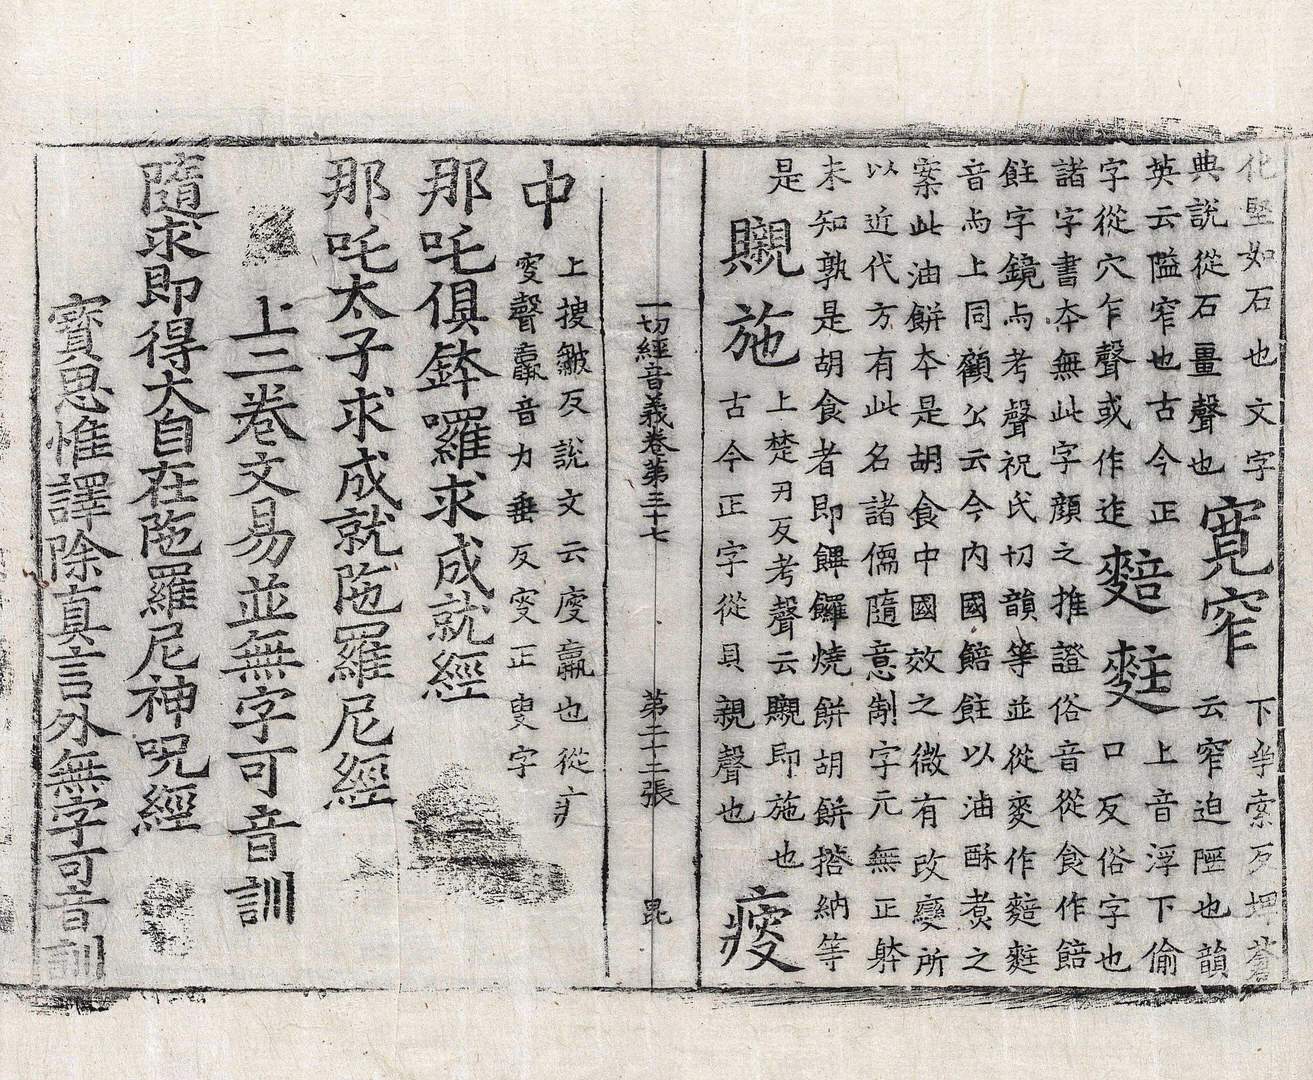 化堅如石也文字
典說從石畺聲也
寬窄
下爭索反埤蒼
云窄迫陿也韻
英云隘窄也古今正
字從穴乍聲或作迮
䴺䴴
上音浮下偷
口反俗字也
諸字書夲無此字顔之推證俗音從食作䭃
䬴字鏡与考聲祝氏切韻等並從麥作䴺䴴
音与上同顧公云今內國䭃䬴以油酥煮之
案此油餅夲是胡食中國效之微有改變所
以近代方有此名諸儒隨意制字元無正躰
未知孰是胡食者即饆饠燒餅胡餅搭納等
是
䞋施
上楚刃反考聲云䞋即施也
古今正字從貝親聲也
瘦
一切經音義卷第三十七 第二十二張 毘
中
上搜皺反說文云瘦羸也從疒
叜聲羸音力垂反叜正叟字
那吒俱鉢囉求成就經
那吒太子求成就陁羅尼經
上二卷文易並無字可音訓
隨求即得大自在陁羅尼神呪經
寶思惟譯除真言外無字可音訓